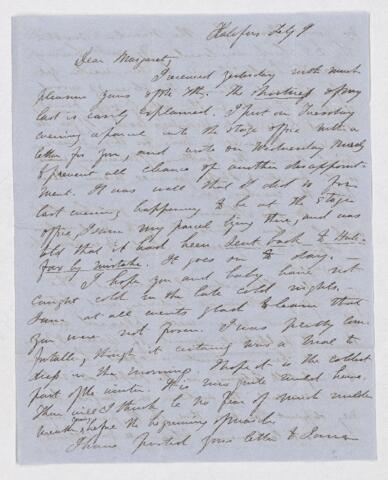 Halifax Feby 9
Dear Margaret,
I received yesterday with much
pleasure yours of the 7th. the shortness of my
last is easily explained. I put on Tuesday
evening a parcel into the Stage office with a
letter for you, and wrote on Wednesday merely
to prevent all chance of another disappoint-
ment. It was well that I did so for
last evening happening to be at the Stage
office, I saw my parcel lying there, and was
told that it had been sent back to Hali-
fax by mistake. It goes on to day.
I hope you and baby have not
caught cold in the late cold nights.
I am at all events glad to learn that
you were not frozen. I was pretty com-
fortable, though it certainly was a trial to
dress in the morning. I hope it is the coldest
part of the winter. It is now quite mild here.
There will I think be no fear of much milder
weather before the beginning of March.
I have posted your letter to